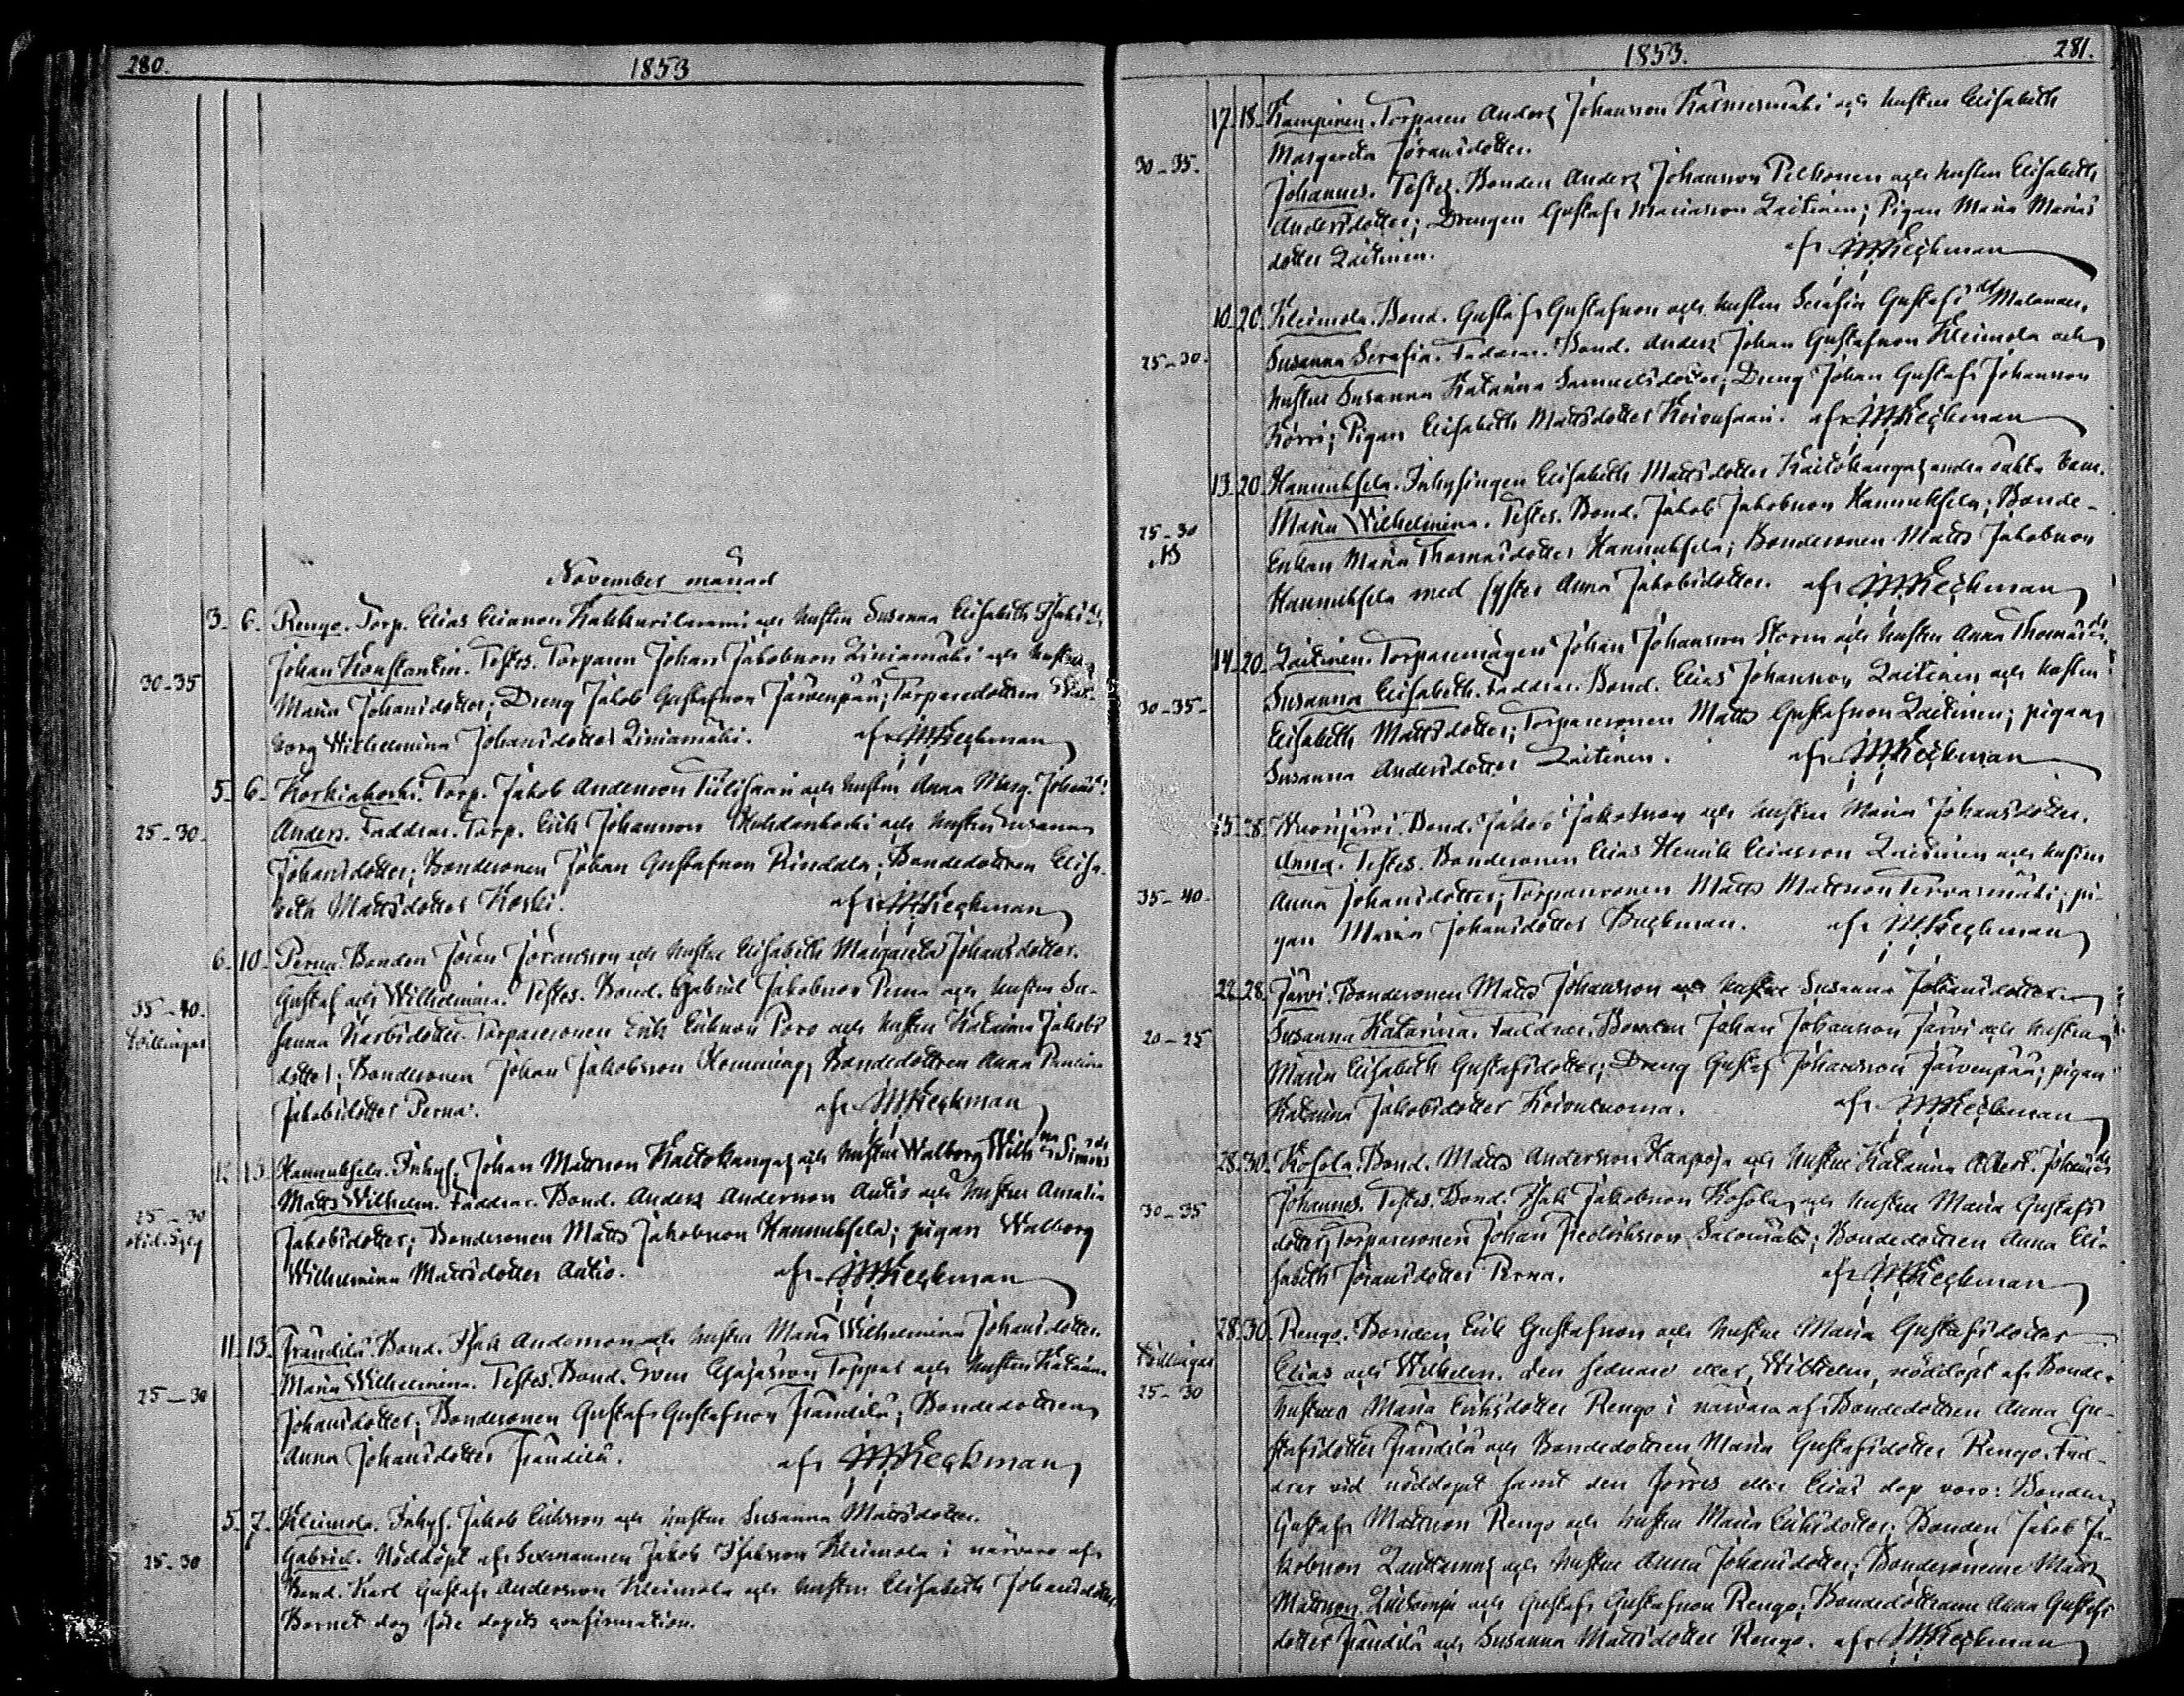 280. 1853
November månad
3. 6. Rengo. Torp. Elias Eliasson Kakkurilammi och hustru Susanna Elisabeth Isaksdr
Johan Konstantin. Testes. Torparen Johan Jakobsson Liniamäki och hustru
30-35 Maria Johansdotter; Dreng Jakob Gustafsson Järvenpää; Torparedottren Wal-
borg Wilhelmina Johansdotter Liniamäki. afr MKeckman
5. 6. Torp. Jakob Andersson och hustru Anna Marg. Johansd:
25-30. Anders. Faddrar. Torp. Erik Johansson och hustru Susanna
Johansdotter; Bondesonen Johan Gustafsson Rindala; Bondedottren Elisa-
beth Mattsdotter Koski. afr MKeckman
6. 10. Perna. Bonden Jöran Jöransson och hustru Elisabeth Margareta Johansdotter.
Gustaf och Wilhelmina. Testes. Bond. Gabriel Jakobsson Perna och hustru Su-
35-40. sanna dotter. Torparesonen Erik Eriksson Poro och hustru Katarina Jakobs
Tvillingar dotter; Bondesonen Johan Jakobsson Bondedottren Anna
Jakobsdotter Perna. afr MKeckman
12. 13. Hannuksela. Inhys. Johan Mattsson Kaitokangas och hustru Walborg Wilh:na Simonsdr
Matts Wilhelm. Faddrar. Bond. Anders Andersson Antio och hustru Amalia
25-30 Jakobsdotter; Bondesonen Matts Jakobsson Hannuksela; pigan Walborg
Wilhelmina Mattsdotter Antio. afr MKeckman
11. 13. Frändilä. Bond. Isak Andersson och hustru Maria Wilhelmina Johansdotter.
Maria Wilhelmina. Testes. Bond. Sven Esajasson Toppar och hustru Katarina
25-30 Johansdotter; Bondesonen Gustaf Gustafsson Frändilä; Bondedottren
Anna Johansdotter Frändilä. afr MKeckman
5. 7. Kleimola. Inhys. Jakob Eriksson och hustru Susanna Mattsdotter.
25-30 Gabriel. Nöddöpt af Sexmannen Jakob Isaksson Kleimola i närvaro af
Bond. Karl Gustaf Andersson Kleimola och hustru Elisabeth Johansdotter.
Barnet dog före dopets confirmation.
1853. 281.
17. 18. Kampinen. Torparen Anders Johansson och hustru Elisabeth
30-35. Margareta Jöransdotter.
Johannes. Testes. Bonden Anders Johansson Pelkonen och hustru Elisabeth
Andersdotter; Drengen Gustaf Mariasson Laitinen; Pigan Maria Marias
dotter Laitinen. afr MKeckman
10. 20. Kleimola. Bond. Gustaf Gustafsson och hustru Serafia Gustafsdr Malander.
25-30. Susanna Serafia. Faddrar. Bond. Anders Johan Gustafsson Kleimola och
hustru Susanna Katarina Samuelsdotter; Dreng Johan Gustaf Johansson
Körri; Pigan Elisabeth Mattsdotter Koivusaari. afr MKeckman
13. 20. Hannuksela. Inhysingen Elisabeth Mattsdotter Kaitokangas andra oäkta barn.
25-30 Maria Wilhelmina. Testes. Bond. Jakob Jakobsson Hannuksela; Bonde-
Enkan Maria Thomasdotter Hannuksela; Bondesonen Matts Jakobsson
Hannuksela med syster Anna Jakobsdotter. afr MKeckman
14. 20. Laitinen. Torparemågen Johan Johansson Storm och hustru Anna Thomasdr.
30-35. Susanna Elisabeth. Faddrar. Bond. Elias Johansson Laitinen och hustru
Elisabeth Mattsdotter; Torparesonen Matts Gustafsson Laitinen; pigan
Susanna Andersdotter Laitinen. afr MKeckman
25. 28. Kuorijärvi. Bond. Jakob Jakobsson och hustru Maria Johansdotter.
Anna. Testes. Bondesonen Elias Henrik Eliasson Laitinen och hustru
35-40. Anna Johansdotter; Torparesonen Matts Mattsson Tervasmäki; pi-
gan Maria Johansdotter Buckman. afr MKeckman
22. 28. Järvi. Bondesonen Matts Johansson och hustru Susanna Johansdotter.
20-25 Susanna Katarina. Faddrar. Bonden Johan Johansson Järvi och hustru
Maria Elisabeth Gustafsdotter; Dreng Gustaf Johansson Järvenpää; pigan
Katarina Jakobsdotter Koivuluoma. afr MKeckman
28. 30. Kosola. Bond. Matts Andersson Haapoja och hustru Katarina Albert. Johansdr
30-35 Johannes. Testes. Bond. Isak Jakobsson Kosola och hustru Maria Gustafs
dotter; Torparesonen Johan Fredriksson Salomäki; Bondedottren Anna Eli-
sabeth Jöransdotter Perna. afr MKeckman
28. 30. Rengo. Bonden Erik Gustafsson och hustru Maria Gustafsdotter
Tvillingar Elias och Wilhelm. den sednare eller Wilhelm, nöddöpt af Bonde-
25-30 hustrun Maria Eriksdotter Rengo i närvaro af Bondedottren Anna Gu-
stafsdotter Frändilä och Bondedottren Maria Gustafsdotter Rengo. Fad-
drar vid nöddopet samt den förres eller Elias dop voro: Bonden
Gustaf Mattsson Rengo och hustru Maria Eriksdotter; Bonden Jakob Ja-
kobsson och hustru Anna Johansdotter; Bondesönerne Matts
Mattsson och Gustaf Gustafsson Rengo; Bondedöttrarne Anna Gustafs
dotter Frändilä och Susanna Mattsdotter Rengo. afr MKeckman